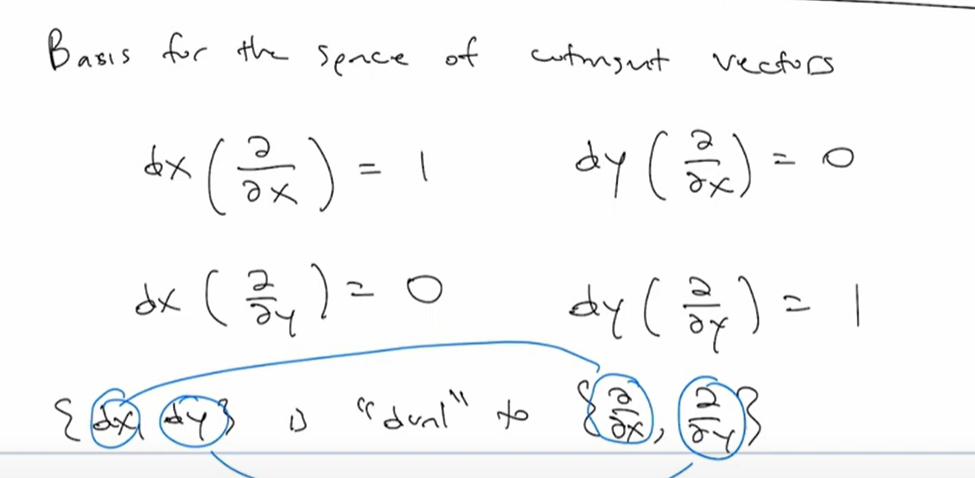 Basis for the space of cotangent vectors
dx (∂/∂x) = 1 dy (∂/∂x) = 0
dx (∂/∂y) = 0 dy (∂/∂y) = 1
{dx, dy} is "dual" to {∂/∂x, ∂/∂y}